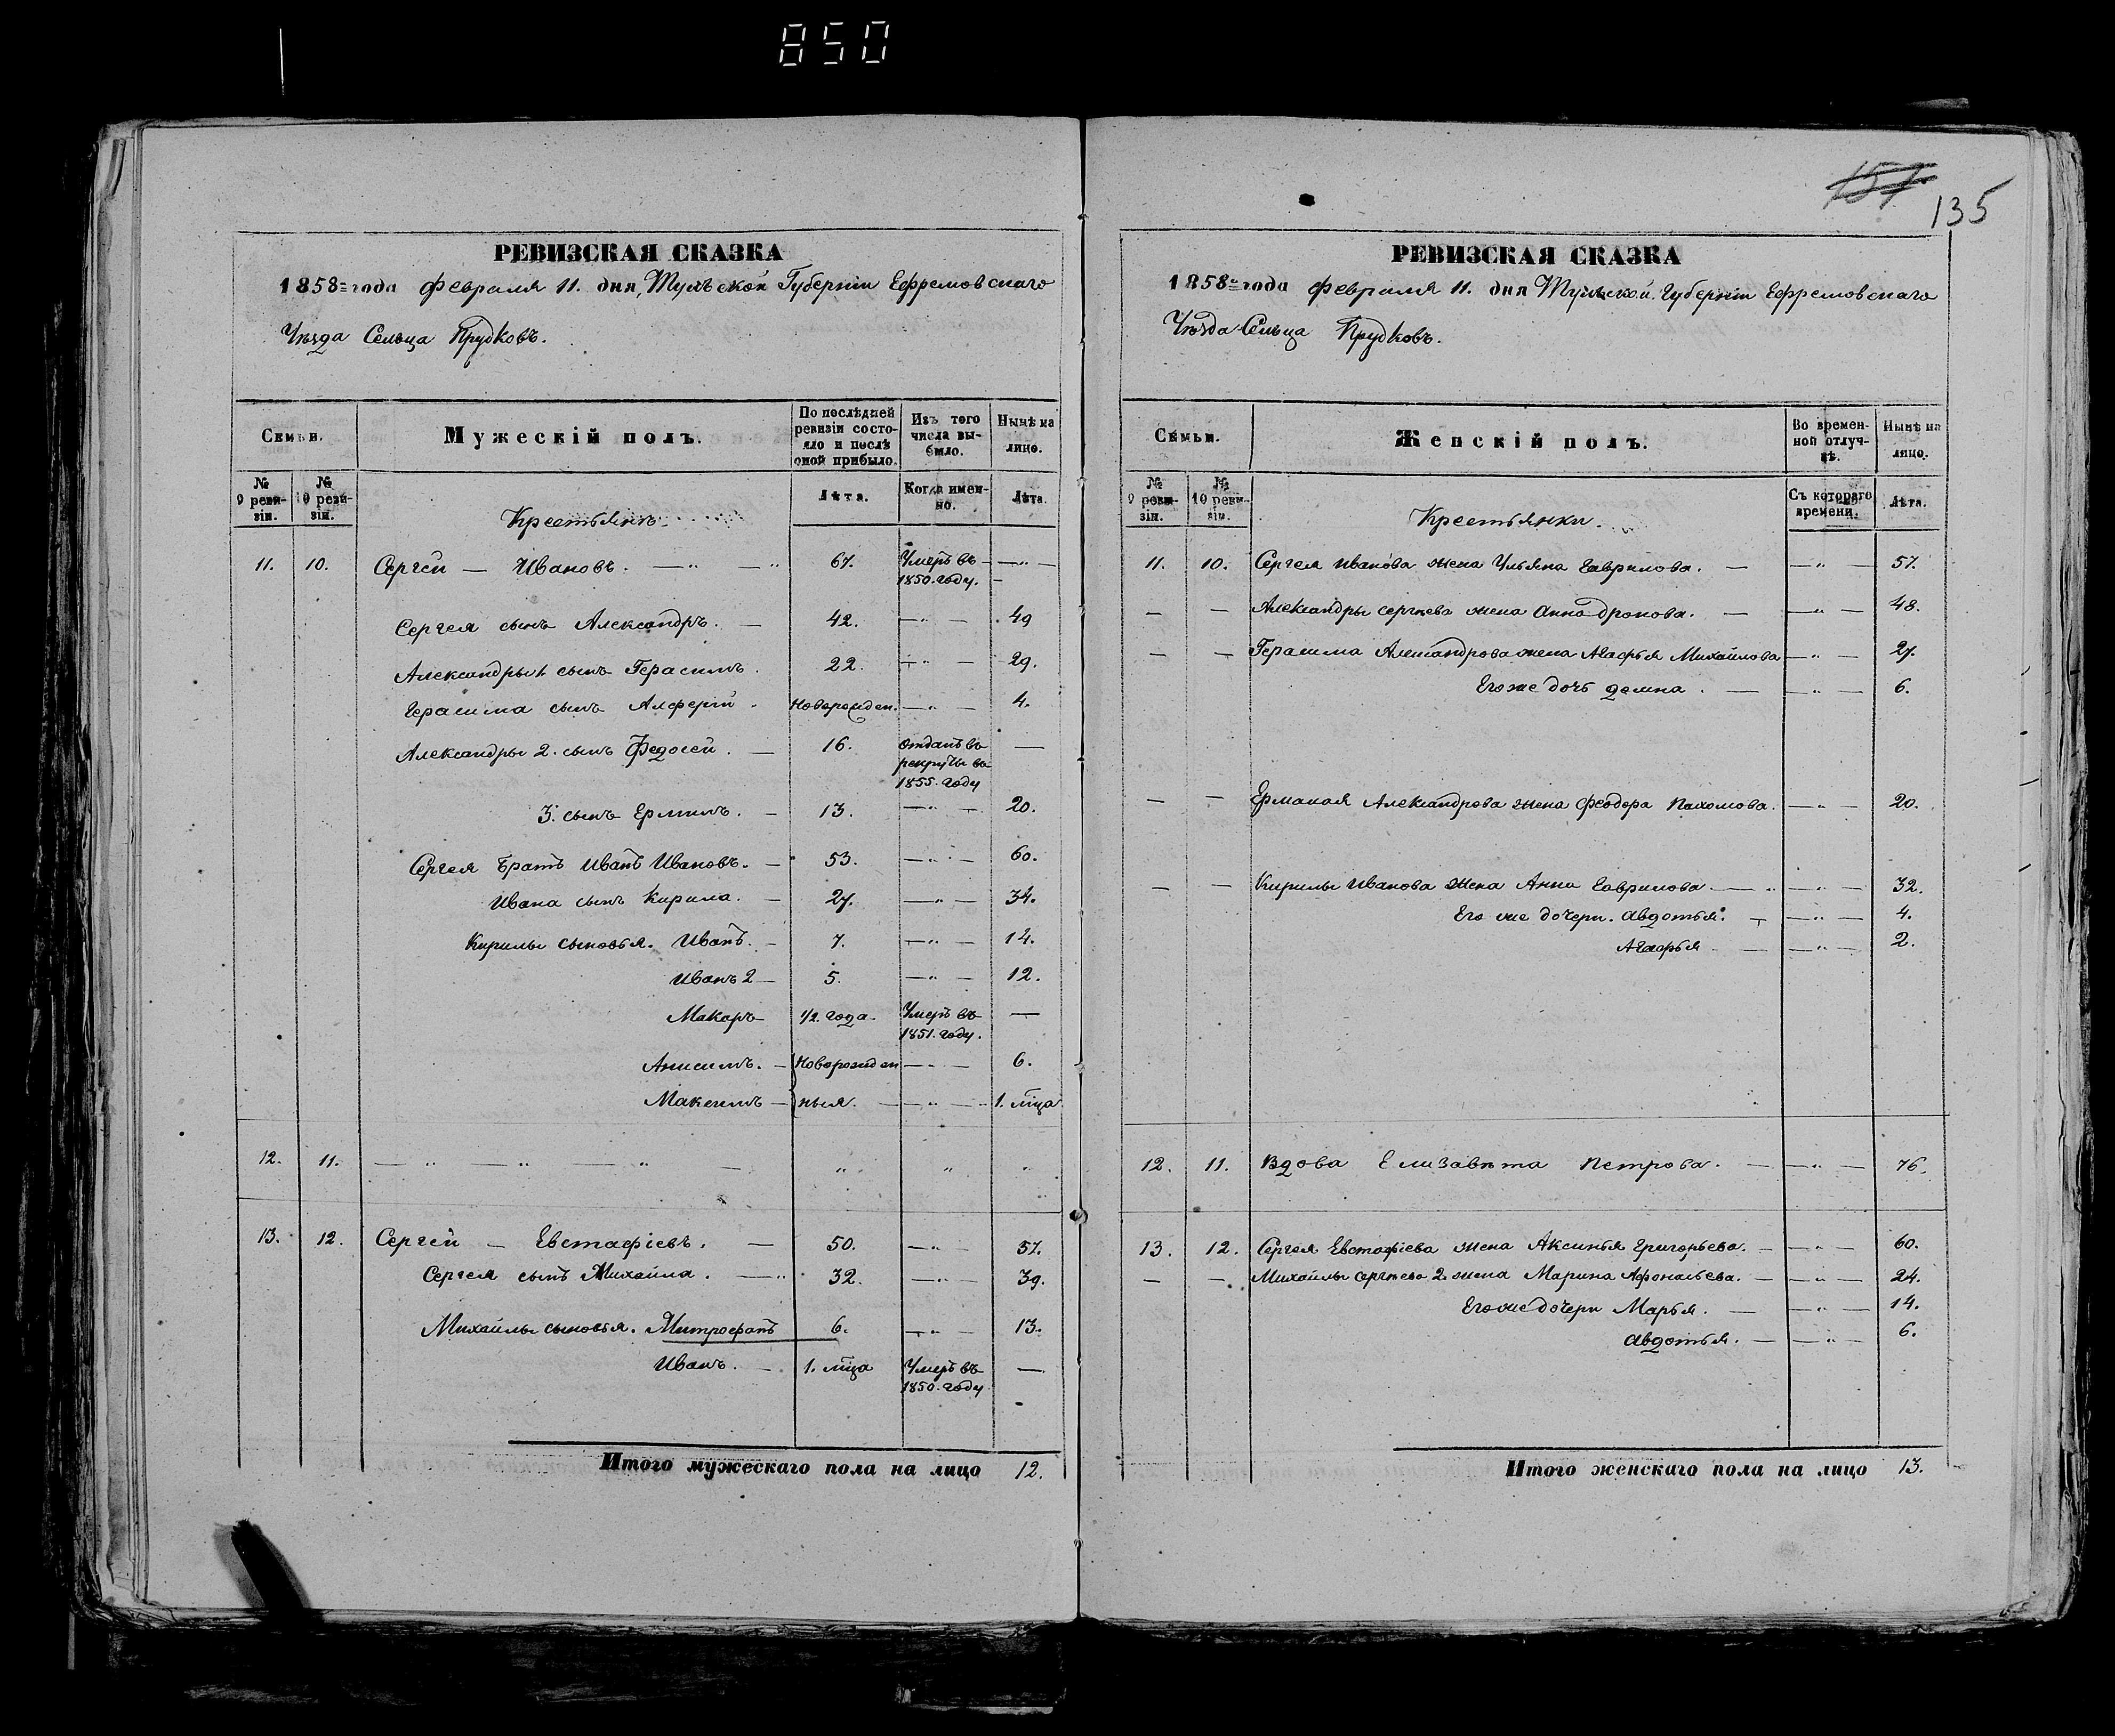 850
157.
135
РЕВИЗСКАЯ СКАЗКА
1858 года февраля 11. дня, Тульской Губерніи Ефремовскаго
Уѣзда Сельца Прудковъ.
Семьи.
Мужескій полъ.
По послѣдней ревизіи состояло и послѣ оной прибыло.
Изъ того числа выбыло.
Нынѣ на лицо.
№ 9 ревизіи.
№ 10 ревизіи.
Крестьянъ
Лѣта.
Когда именно.
Лѣта.
11. 10. Сергѣй — Ивановъ. — " — " 67. Умеръ въ 1850. году. — " —
Сергея сынъ Александръ. — 42. — " — 49
Александры 1. сынъ Герасимъ. 22. — " — 29.
Герасима сынъ Алферій. Новорожден. — " — 4.
Александры 2. сынъ Федосей. — 16. отданъ въ рекруты въ 1855. году —
3. сынъ Ермилъ. — 13. — " — 20.
Сергея братъ Иванъ Ивановъ. — 53. — " — 60.
Ивана сынъ Кирила. — 27. — " — 34.
Кирилы сыновья. Иванъ. — 7. — " — 14.
Иванъ 2 — 5. — " — 12.
Макаръ — 1/2. года. Умеръ въ 1851. году. —
Анисимъ. — Новорожден — " — 6.
Максимъ — ныя. — " — 1. мца
12. 11. — " — " — " — " " "
13. 12. Сергѣй — Евстафіевъ. — 50. — " — 57.
Сергея сынъ Михайла. — " 32. — " — 39.
Михайлы сыновья. Митрофанъ 6. — " — 13.
Иванъ. — 1. мца Умеръ въ 1850. году —
Итого мужескаго пола на лицо 12.
РЕВИЗСКАЯ СКАЗКА
1858 года февраля 11. дня Тульской. Губерніи Ефремовскаго
Уѣзда Сельца Прудковъ.
Семьи.
Женскій полъ.
Во временной отлучкѣ.
Нынѣ на лицо.
№ 9 ревизіи.
№ 10 ревизіи.
Крестьянки.
Съ котораго времени.
Лѣта.
11. 10. Сергея Иванова жена Ульяна Гаврилова. — — " — 57.
— — Александры Сергѣева жена Анна Дронова. — — " — 48.
— — Герасима Александрова жена Агафья Михайлова — " — 27.
Его же дочь Домна. — — " — 6.
— — Ермалая Александрова жена Феодора Пахомова. — " — 20.
— — Кирилы Иванова жена Анна Гаврилова. — " — " — 32.
Его же дочери. Авдотья. — — " — 4.
Агафья — — " — 2.
12. 11. Вдова Елизавѣта Петрова. — — " — 76.
13. 12. Сергея Евстафіева жена Аксинья Григорьева. — — " — 60.
— — Михайлы Сергѣева 2. жена Марина Афонасьева. — — " — 24.
Его же дочери Марья. — — " — 14.
Авдотья. — — " — 6.
Итого женскаго пола на лицо 13.